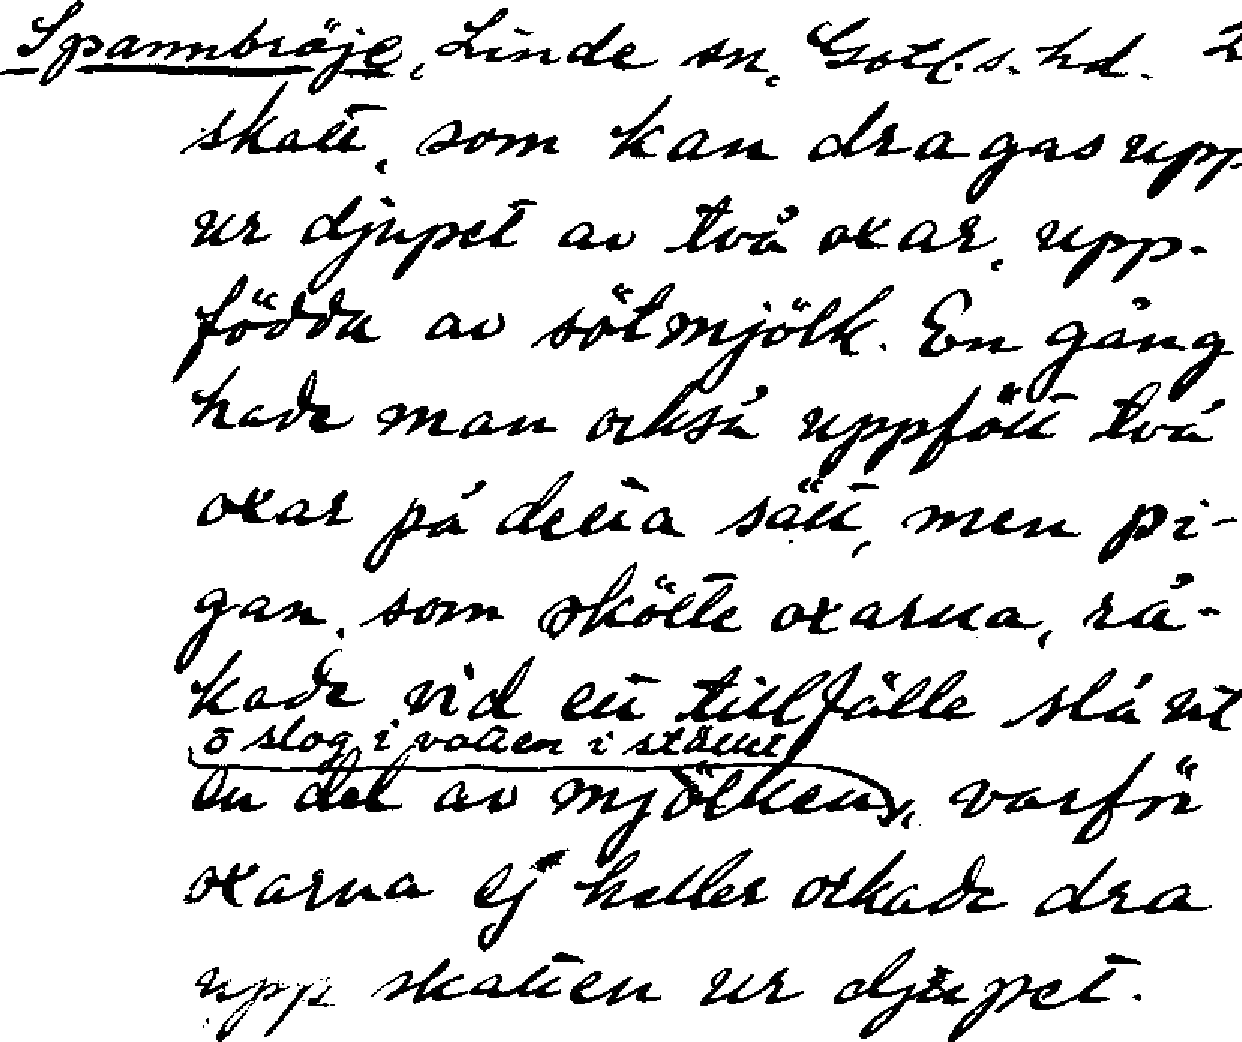 Spannbröje, Linde sn, Gotl. s. hd.
skatt, som kan dragas upp
ur djupet av två oxar, upp-
födda av sötmjölk. En gång
hade man också uppfött två
oxar på detta sätt, men pi-
gan, som skötte oxarna, rå-
kade vid ett tillfälle slå ut
o slog i vatten i stället
en del av mjölken, varför
oxarna ej heller orkade dra
upp skatten ur djupet.